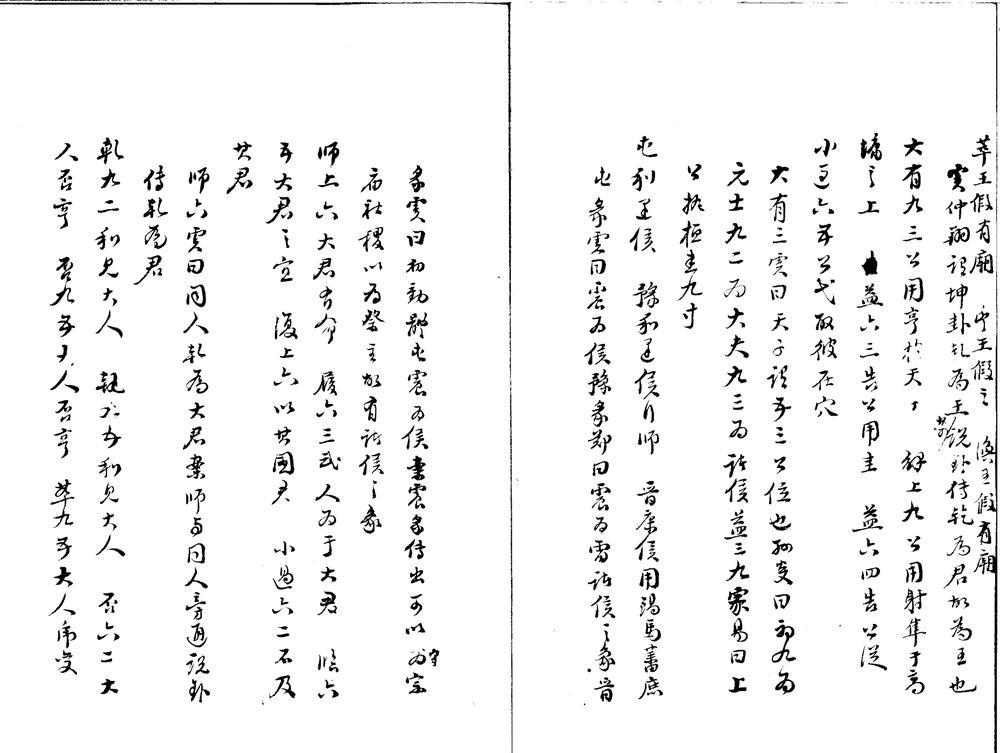 萃王假有廟 家人王假之 渙王假有廟
虞仲翔說坤卦乾為王說卦傳乾為君故為王也
大有九三公用亨于天子 解上九公用射隼于高
墉之上 益六三告公用圭 益六四告公從
小過六五公弋取彼在穴
大有三虞曰天子謂五三公位也 爻曰初九為
元士九二為大夫九三為諸侯益三九家易曰上
公執桓圭九寸
屯利建侯 豫利建侯行師 晉康侯用錫馬蕃庶
屯彖虞曰震為侯豫彖鄭曰震為雷諸侯之象晉
彖虞曰初動體屯震為侯案震彖傳出可以守宗
廟社稷以為祭主故有諸侯之象
師上六大君有命 履六三武人為于大君 臨六
五大君之宜 復上六以其國君 小過六二不及
其君
師六虞曰同人乾為大君案師與同人旁通說卦
傳乾為君
乾九二利見大人 九五利見大人 否六二大
人否亨 否九五大人否亨 萃九五大人虎變